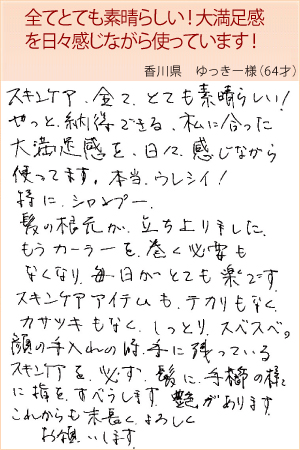 全てとても素晴らしい！大満足感
を日々感じながら使っています！
香川県　ゆっきー様（64才）
スキンケア、全て、とても素晴らしい！
やっと、納得できる、私に合った
大満足感を、日々、感じながら
使ってます。本当、ウレシイ！
特に、シャンプー、
髪の根元が、立ち上りました。
もうカーラーを、巻く必要も
なくなり、毎日がとても楽です。
スキンケアアイテムも、テカリもなく、
カサツキもなく、しっとり、スベスベ。
顔の手入れの時、手に残っている
スキンケアを、必ず、髪に、手櫛の様
に指を、すべらします。艶があります。
これからも末長く、よろしく
お願いします。